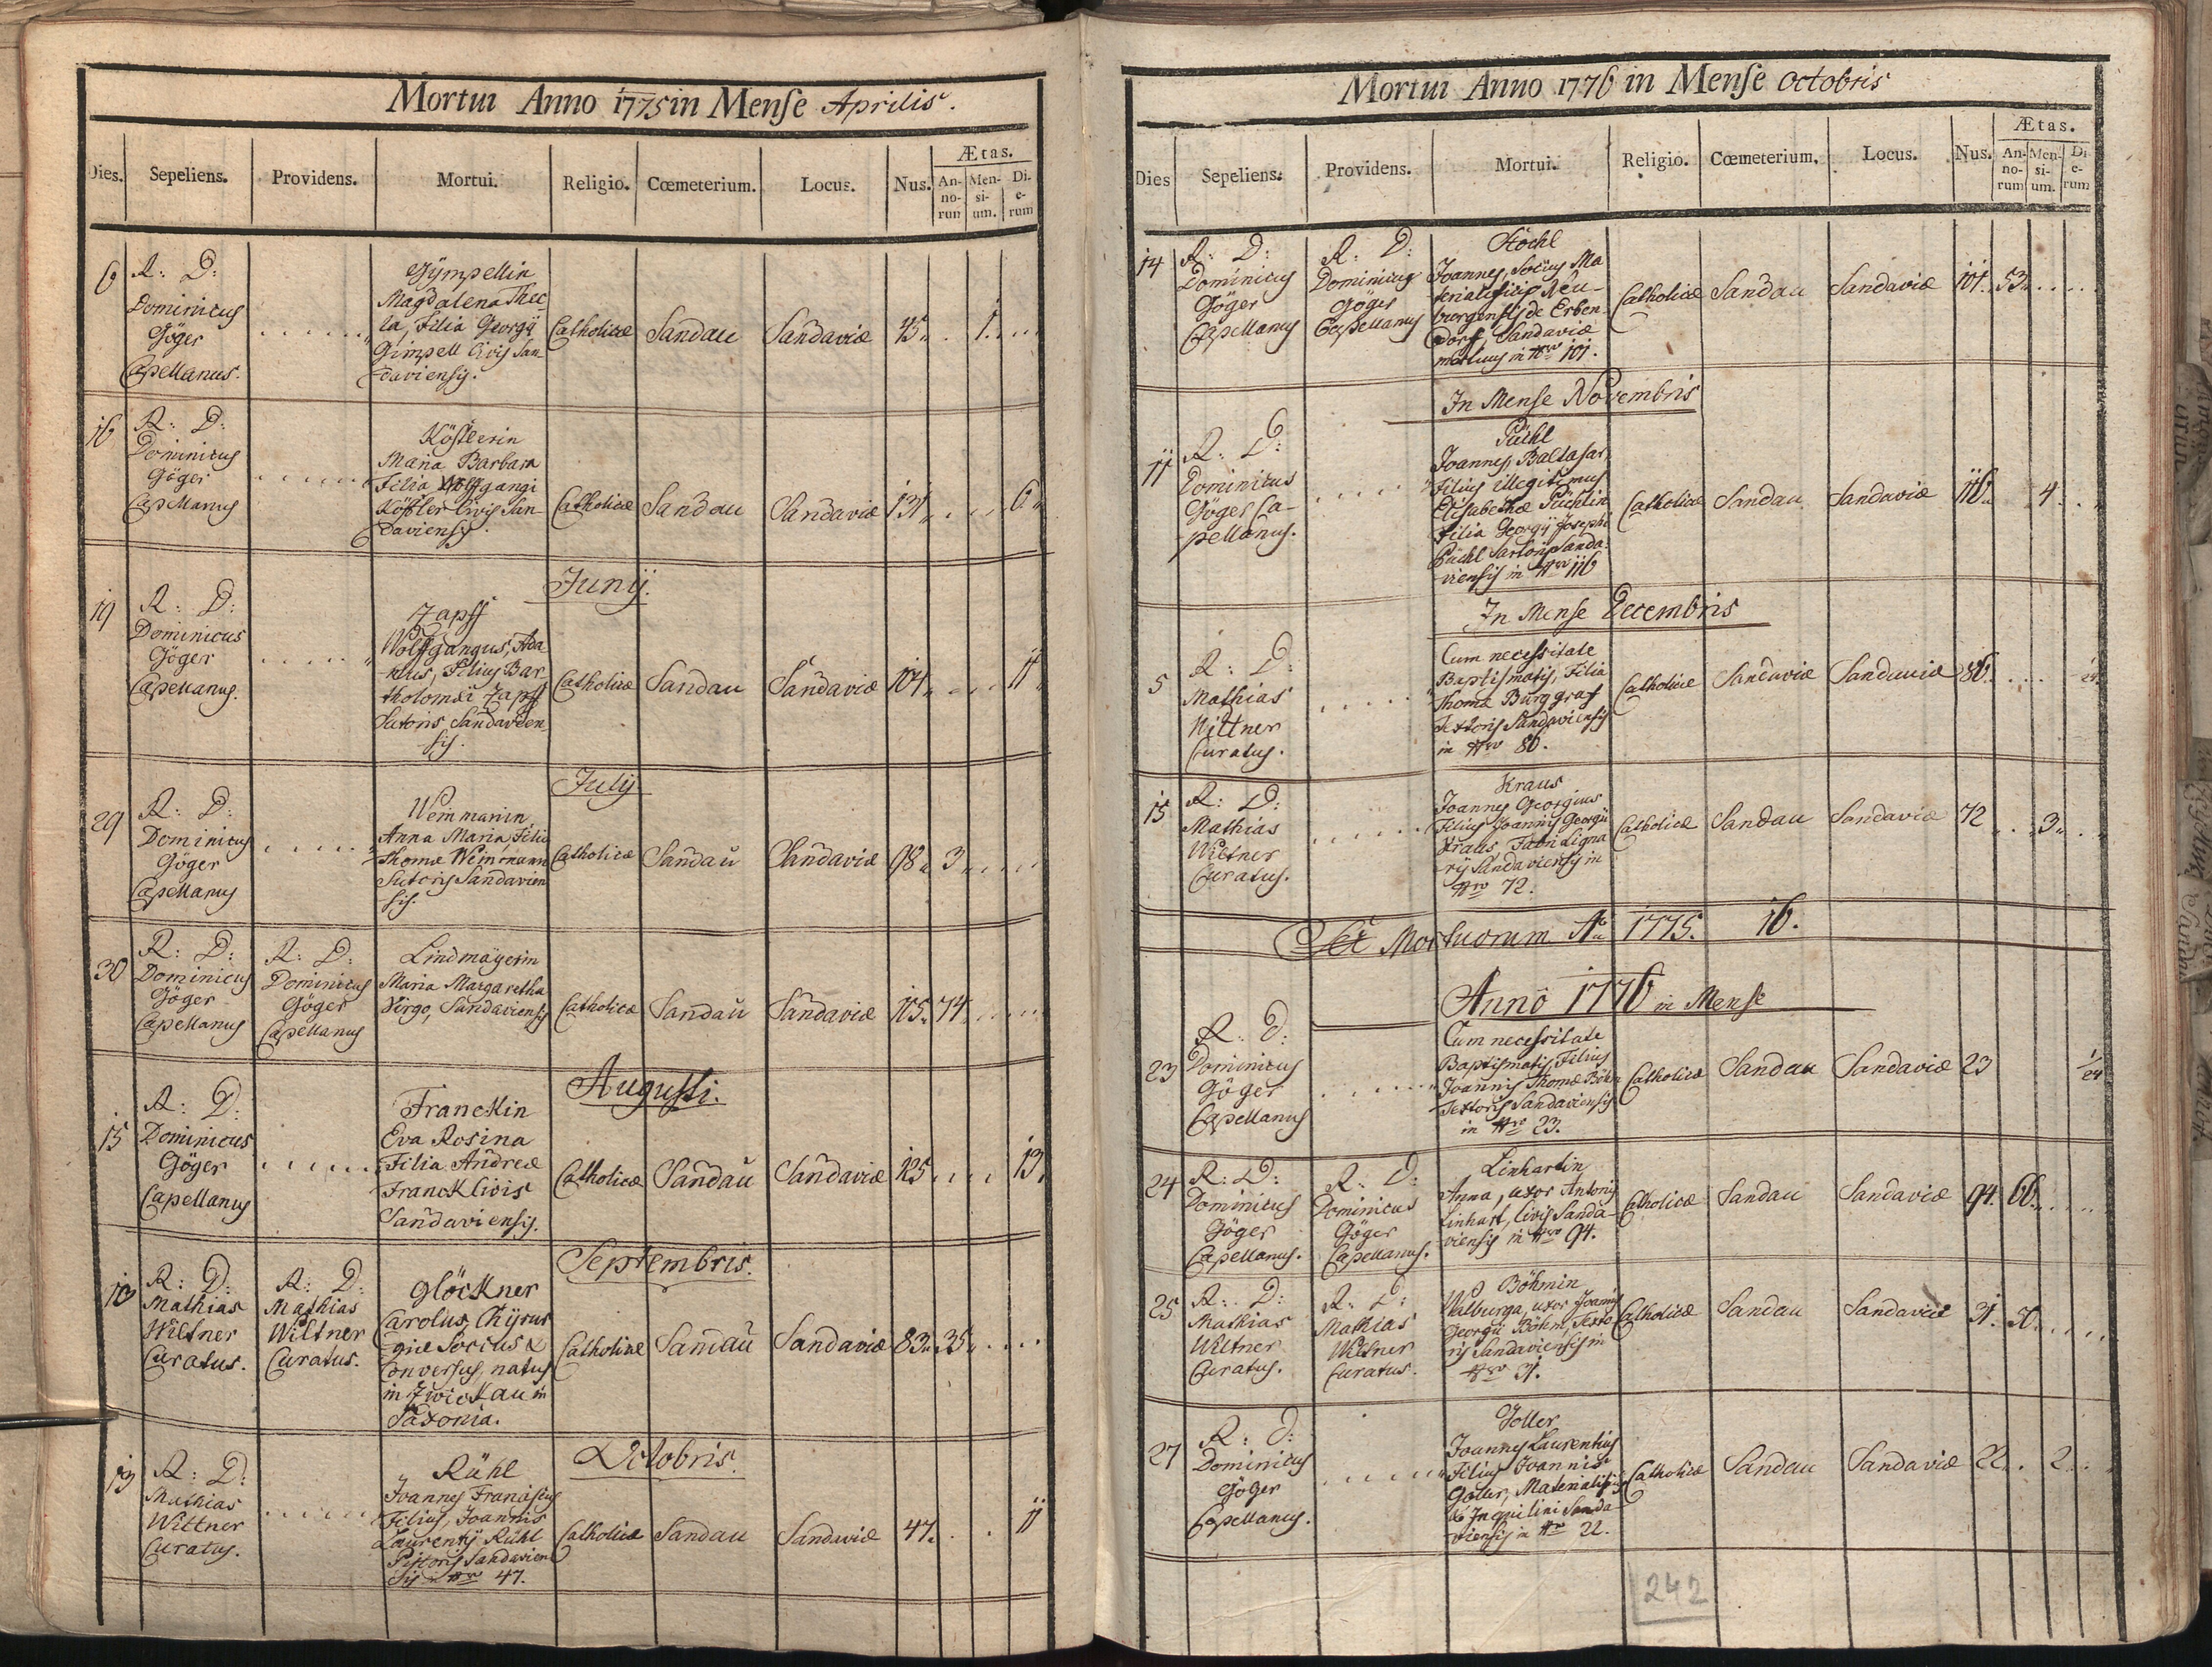 Mortui Anno 1775 in Mense Aprilis.
Dies. Sepeliens. Providens. Mortui. Religio. Cœmeterium. Locus. Nus. Ætas.
An-norum Men-sium. Di-erum
6 R: D: Dominicus Göger Capellanus.
Gympellin
Magdalena Thec
la, Filia Georgÿ
Gimpell Civis San
daviensis.
Catholicæ Sandau Sandaviæ 45 1
16 R: D: Dominicus Göger Capellanus
Kößlerin
Maria Barbara
Filia Wolfgangi
Kößler Civis San
daviensis
Catholicæ Sandau Sandaviæ 131 6
Junÿ.
19 R: D: Dominicus Göger Capellanus.
Zapff
Wolffgangus, Ada
Filius Bar
tholomæi Zapff
Sutoris Sandavien
sis.
Catholicæ Sandau Sandaviæ 104 11
Julÿ
29 R: D: Dominicus Göger Capellanus
Weinmanin
Anna Maria Filia
Thomæ Weinmann
Sutoris Sandavien
sis.
Catholicæ Sandau Sandaviæ 98 3
30 R: D: Dominicus Göger Capellanus
R: D: Dominicus Göger Capellanus
Lindmäyerin
Maria Margaretha
Virgo, Sandaviensis
Catholicæ Sandau Sandaviæ 105 74
Augusti.
15 R: D: Dominicus Göger Capellanus
Franckin
Eva Rosina
Filia Andreæ
Franck Civis
Sandaviensis.
Catholicæ Sandau Sandaviæ 125 13
Septembris.
10 R: D: Mathias Wiltner Curatus.
R: D: Mathias Wiltner Curatus.
Glöckner
Carolus, Chÿrur
giæ Socius &
Conversus, natus
in Zwickau in
Saxonia.
Catholicæ Sandau Sandaviæ 83 35
Octobris.
19 R: D: Mathias Wiltner Curatus.
Rühl
Joannes Franciscus
Filius, Joannis
Laurentÿ Rühl
Pistoris Sandavien
sis in Nro 47.
Catholicæ Sandau Sandaviæ 47. 11
Mortui Anno 1776 in Mense Octobris
Dies Sepeliens. Providens. Mortui. Religio. Cœmeterium. Locus. Nus. Ætas.
An-norum Men-sium. Di-erum
14 R: D: Dominicus Göger Capellanus
R: D: Dominicus Göger Capellanus
Stöckl
Joannes, Socius Ma
terialificis Neu-
burgensis de Erben
dorf, Sandaviæ
mortuus in Nro 101.
Catholicæ Sandau Sandaviæ 101 53
In Mense Novembris
11 R: D: Dominicus Göger Ca-pellanus.
Püchl
Joannes Baltasar
Filius illegitimus
Elisabethæ Püchlin
Filia Georgÿ Josephi
Püchl Sartoris Sanda
viensis in Nro 116
Catholicæ Sandau Sandaviæ 116 4
In Mense Decembris
5 R: D: Mathias Wiltner Curatus.
Cum necessitate
Baptismatis, Filia
Thomæ Burggraf
Textoris Sandaviensis
in Nro 86.
Catholicæ Sandaviæ Sandaviæ 86 1/24
15 R: D: Mathias Wiltner Curatus.
Kraus
Joannes Georgius
Filius Joannis Georgii
Kraus Fabri Ligna
rÿ Sandaviensis in
Nro 72.
Catholicæ Sandau Sandaviæ 72 3
Mortuorum Ao 1775. 16.
Anno 1776 in Mense
23 R: D: Dominicus Göger Capellanus
Cum necessitate
Baptismatis, Filius
Joannis Thomæ Böhm
Textoris Sandaviensis
in Nro 23.
Catholicæ Sandau Sandaviæ 23 1/24
24 R: D: Dominicus Göger Capellanus.
R: D: Dominicus Göger Capellanus.
Linhartin
Anna, uxor Antonÿ
Linhart, Civis Sanda
viensis in Nro 94.
Catholicæ Sandau Sandaviæ 94. 66
25 R: D: Mathias Wiltner Curatus.
R: D: Mathias Wiltner Curatus.
Böhmin
Walburga, uxor Joannis
Georgii Böhm, Texto
ris Sandaviensis in
Nro 31.
Catholicæ Sandau Sandaviæ 31.
27 R: D: Dominicus Göger Capellanus.
Goller
Joannes Laurentius
Filius Joannis
Goller, Materialifi
Inquilini Sanda
viensis in Nro 22.
Catholicæ Sandau Sandaviæ 22 2
242